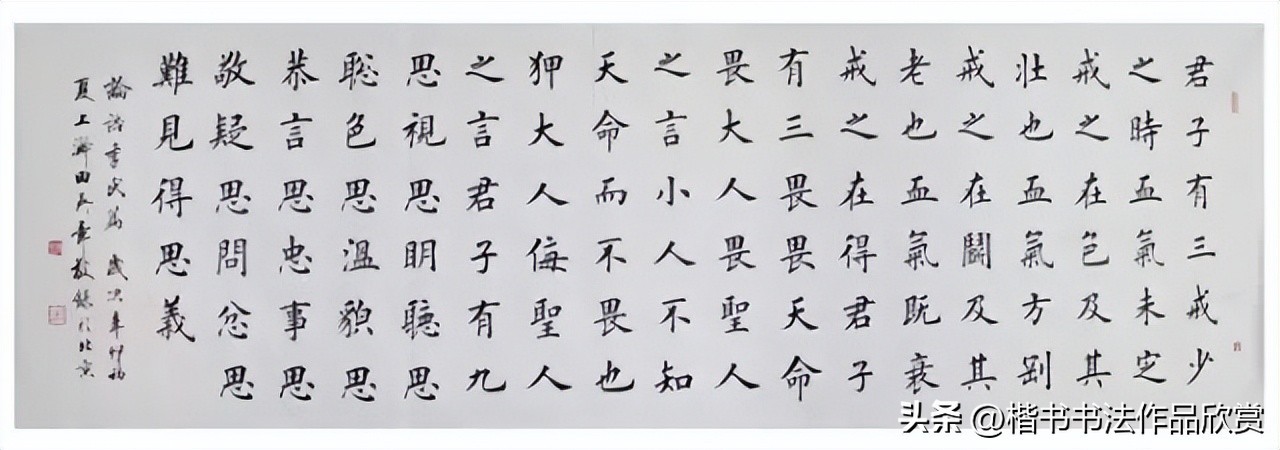 君子有三戒少
之時血氣未定
戒之在色及其
壯也血氣方剛
戒之在鬭及其
老也血氣既衰
戒之在得君子
有三畏畏天命
畏大人畏聖人
之言小人不知
天命而不畏也
狎大人侮聖人
之言君子有九
思視思明聽思
聰色思溫貌思
恭言思忠事思
敬疑思問忿思
難見得思義
論語季氏篇 歲次辛卯初
夏上澣田英章敬錄於北京
头条 @楷书书法作品欣赏